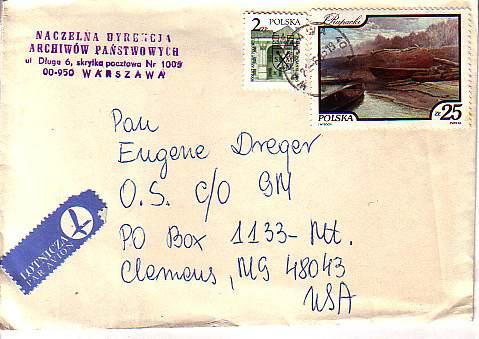 NACZELNA DYREKCJA
ARCHIWÓW PAŃSTWOWYCH
ul Długa 6, skrytka pocztowa Nr 1005
00-950 WARSZAWA
2 POLSKA
POLSKA
zł 25
Pan
Eugene Dreger
O.S. c/o GM
PO Box 1133-Mt.
Clemens, MG 48043
USA
LOTNICZA
PAR AVION